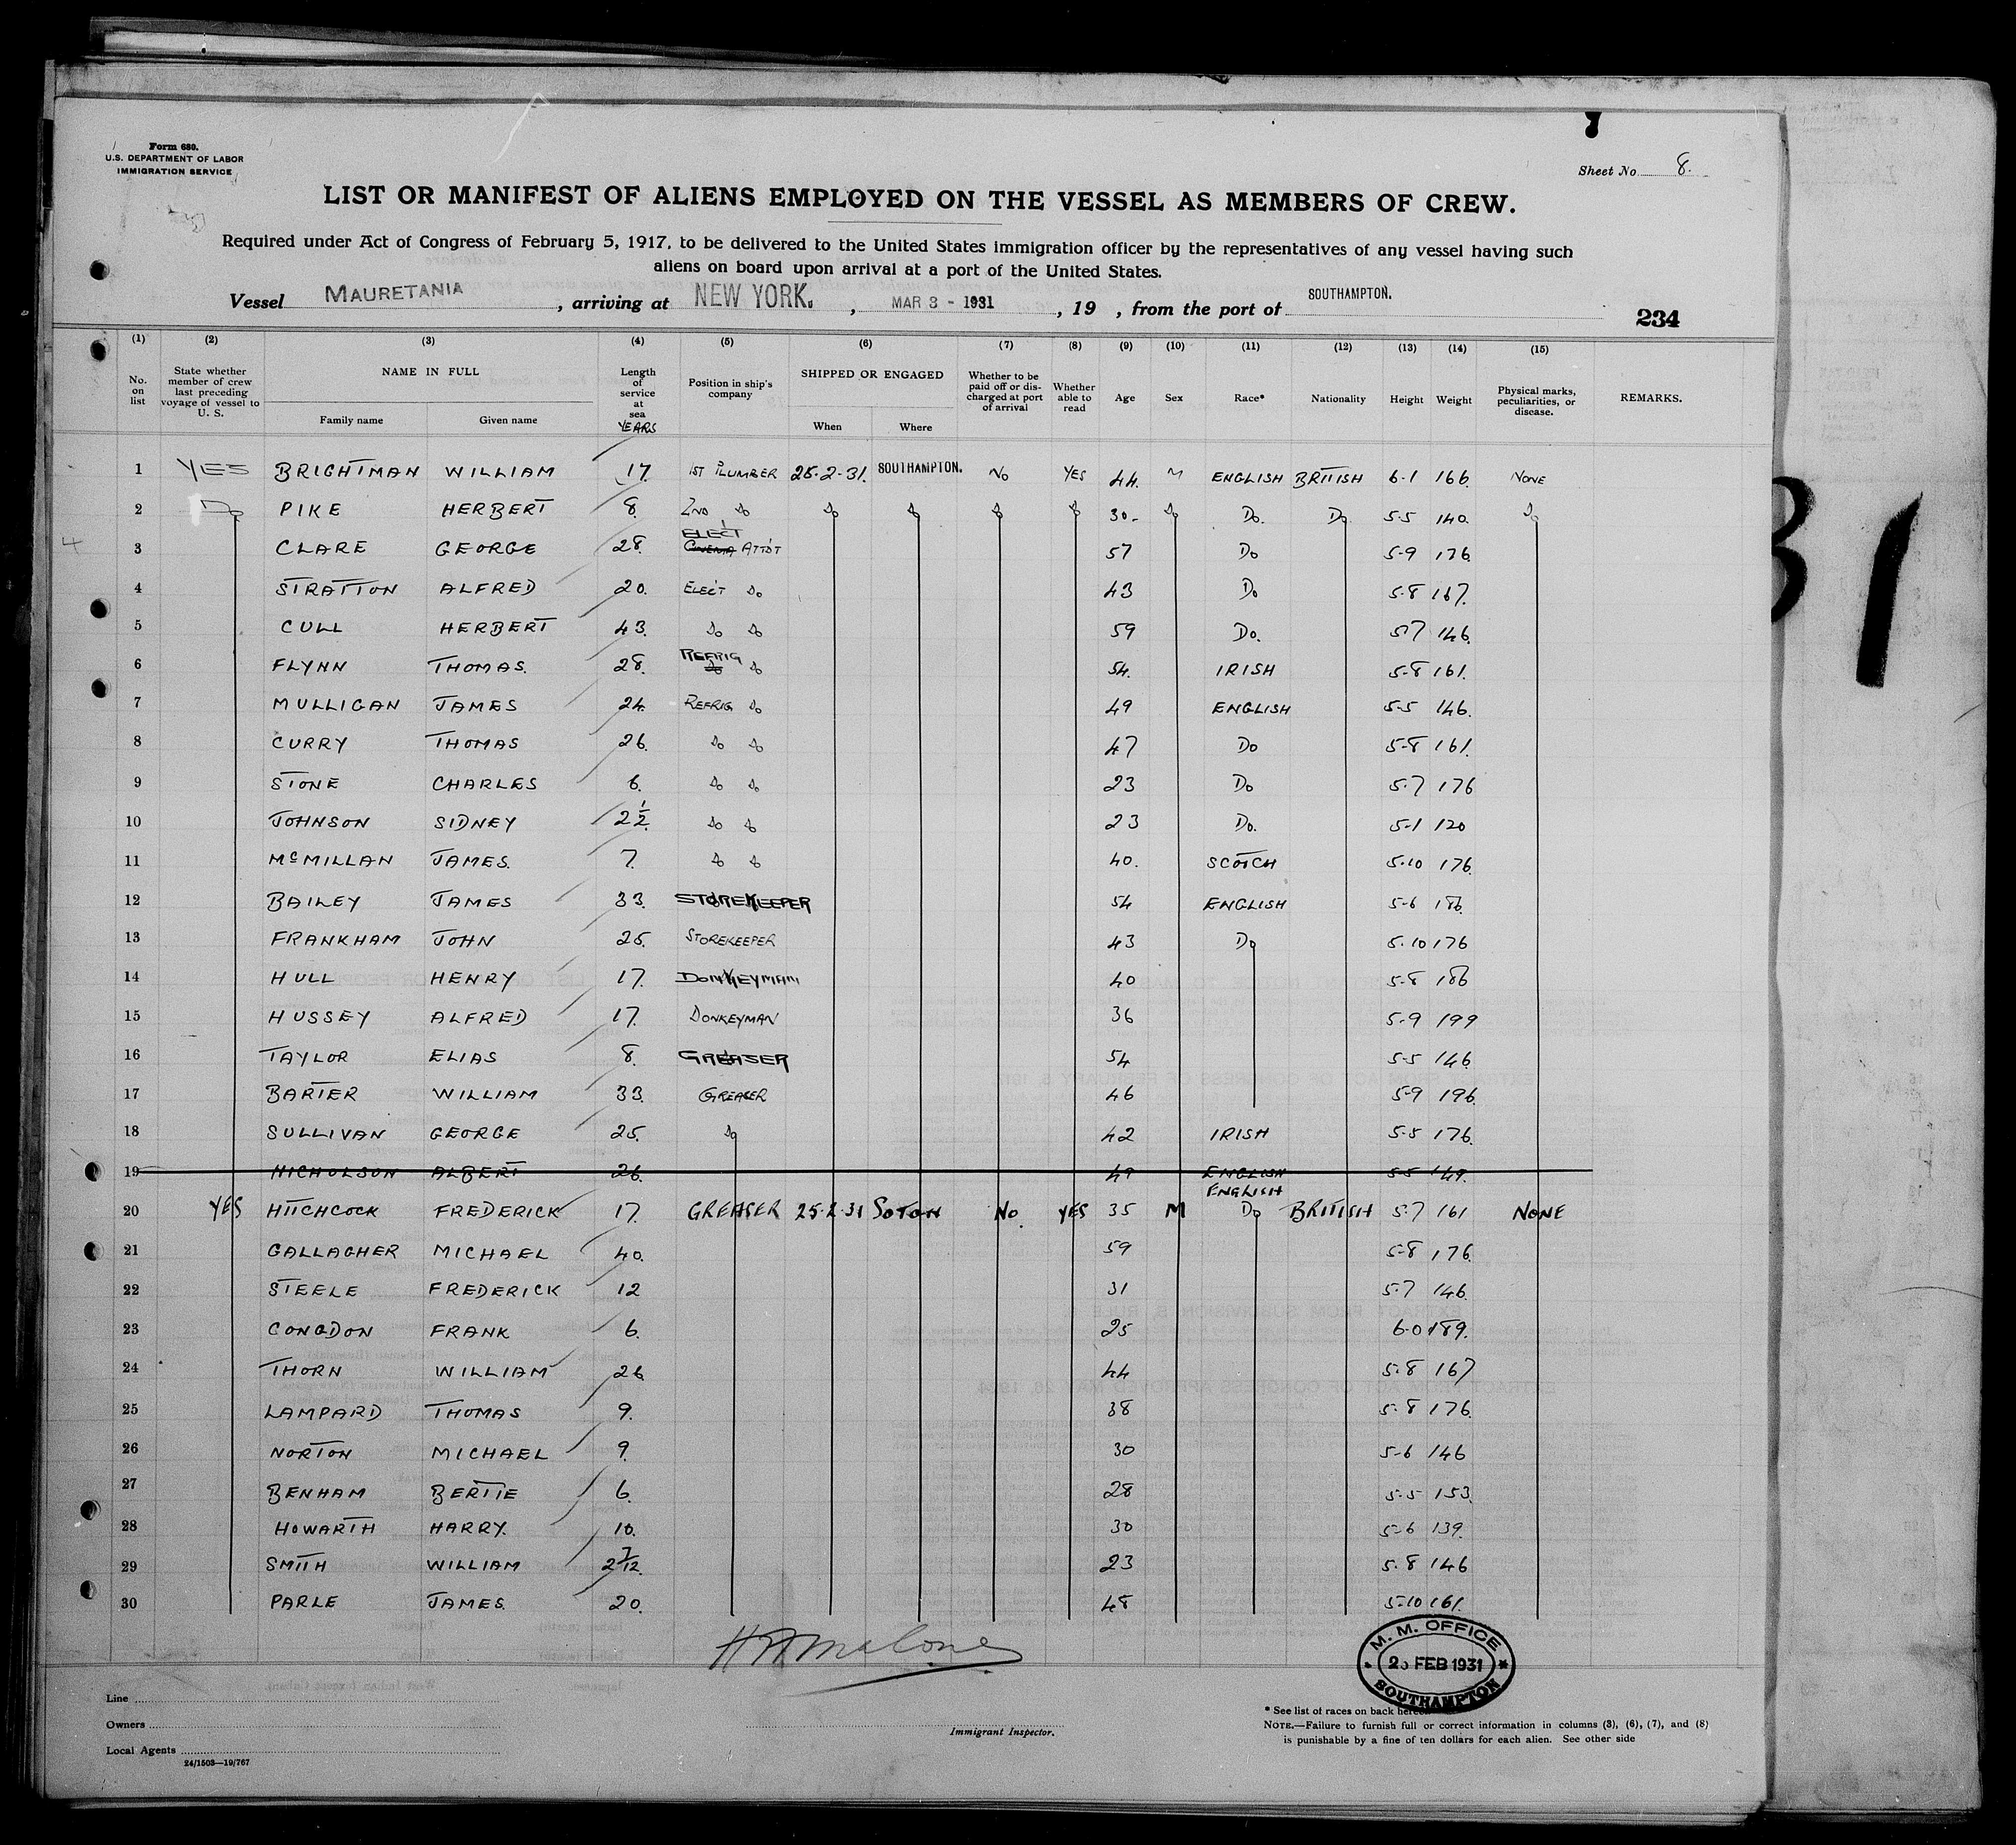 Form 680.
U.S. DEPARTMENT OF LABOR
IMMIGRATION SERVICE
Sheet No. 8.
LIST OR MANIFEST OF ALIENS EMPLOYED ON THE VESSEL AS MEMBERS OF CREW.
Required under Act of Congress of February 5, 1917, to be delivered to the United States immigration officer by the representatives of any vessel having such
aliens on board upon arrival at a port of the United States.
Vessel MAURETANIA, arriving at NEW YORK., MAR 3 - 1931, 19 , from the port of SOUTHAMPTON.
234
(1) (2) (3) (4) (5) (6) (7) (8) (9) (10) (11) (12) (13) (14) (15)
No. on list State whether member of crew last preceding voyage of vessel to U. S. NAME IN FULL Family name Given name Length of service at sea YEARS Position in ship's company SHIPPED OR ENGAGED When Where Whether to be paid off or discharged at port of arrival Whether able to read Age Sex Race* Nationality Height Weight Physical marks, peculiarities, or disease. REMARKS.
1 YES BRIGHTMAN WILLIAM 17. 1ST PLUMBER 25-2-31. SOUTHAMPTON. No YES 44. M ENGLISH BRITISH 6-1 166. NONE
2 Do PIKE HERBERT 8. 2ND Do Do Do Do Do 30- Do Do. Do 5-5 140. Do
3 CLARE GEORGE 28. ELECT CINEMA ATTDT 57 Do 5-9 176
4 STRATTON ALFRED 20. ELECT Do 43 Do 5-8 167.
5 CULL HERBERT 43. Do Do 59 Do. 5-7 146.
6 FLYNN THOMAS. 28. REFRIG Do Do 54. IRISH 5-8 161.
7 MULLIGAN JAMES 24. REFRIG Do 49 ENGLISH 5-5 146.
8 CURRY THOMAS 26. Do Do 47 Do 5-8 161.
9 STONE CHARLES 6. Do Do 23 Do 5-7 176
10 JOHNSON SIDNEY 2 1/2. Do Do 23 Do. 5-1 120
11 McMILLAN JAMES. 7. Do Do 40. SCOTCH 5-10 176.
12 BAILEY JAMES 33. STOREKEEPER 54 ENGLISH 5-6 186.
13 FRANKHAM JOHN 25. STOREKEEPER 43 Do 5-10 176
14 HULL HENRY 17. DONKEYMAN 40 5-8 186
15 HUSSEY ALFRED 17. DONKEYMAN 36 5-9 199
16 TAYLOR ELIAS 8. GREASER 54 5-5 146.
17 BARTER WILLIAM 33. GREASER 46 5-9 196.
18 SULLIVAN GEORGE 25. Do 42 IRISH 5-5 176.
19 NICHOLSON ALBERT 26. 49 ENGLISH 5-5 149.
ENGLISH
20 YES HITCHCOCK FREDERICK 17. GREASER 25-2-31 SOTON No. YES 35 M Do BRITISH 5-7 161 NONE
21 GALLAGHER MICHAEL 40. 59 5-8 176.
22 STEELE FREDERICK 12 31 5-7 146.
23 CONGDON FRANK 6. 25 6-0 189.
24 THORN WILLIAM 26 44 5-8 167
25 LAMPARD THOMAS 9. 38 5-8 176.
26 NORTON MICHAEL 9. 30 5-6 146
27 BENHAM BERTIE 6. 28 5-5 153.
28 HOWARTH HARRY. 10. 30 5-6 139.
29 SMITH WILLIAM 2 7/12. 23 5-8 146
30 PARLE JAMES. 20. 48 5-10 161.
Malone
M. M. OFFICE
FEB 1931
SOUTHAMPTON
Line
Owners
Local Agents
24/1503—19/767
Immigrant Inspector.
* See list of races on back hereof.
NOTE.—Failure to furnish full or correct information in columns (3), (6), (7), and (8)
is punishable by a fine of ten dollars for each alien. See other side
31